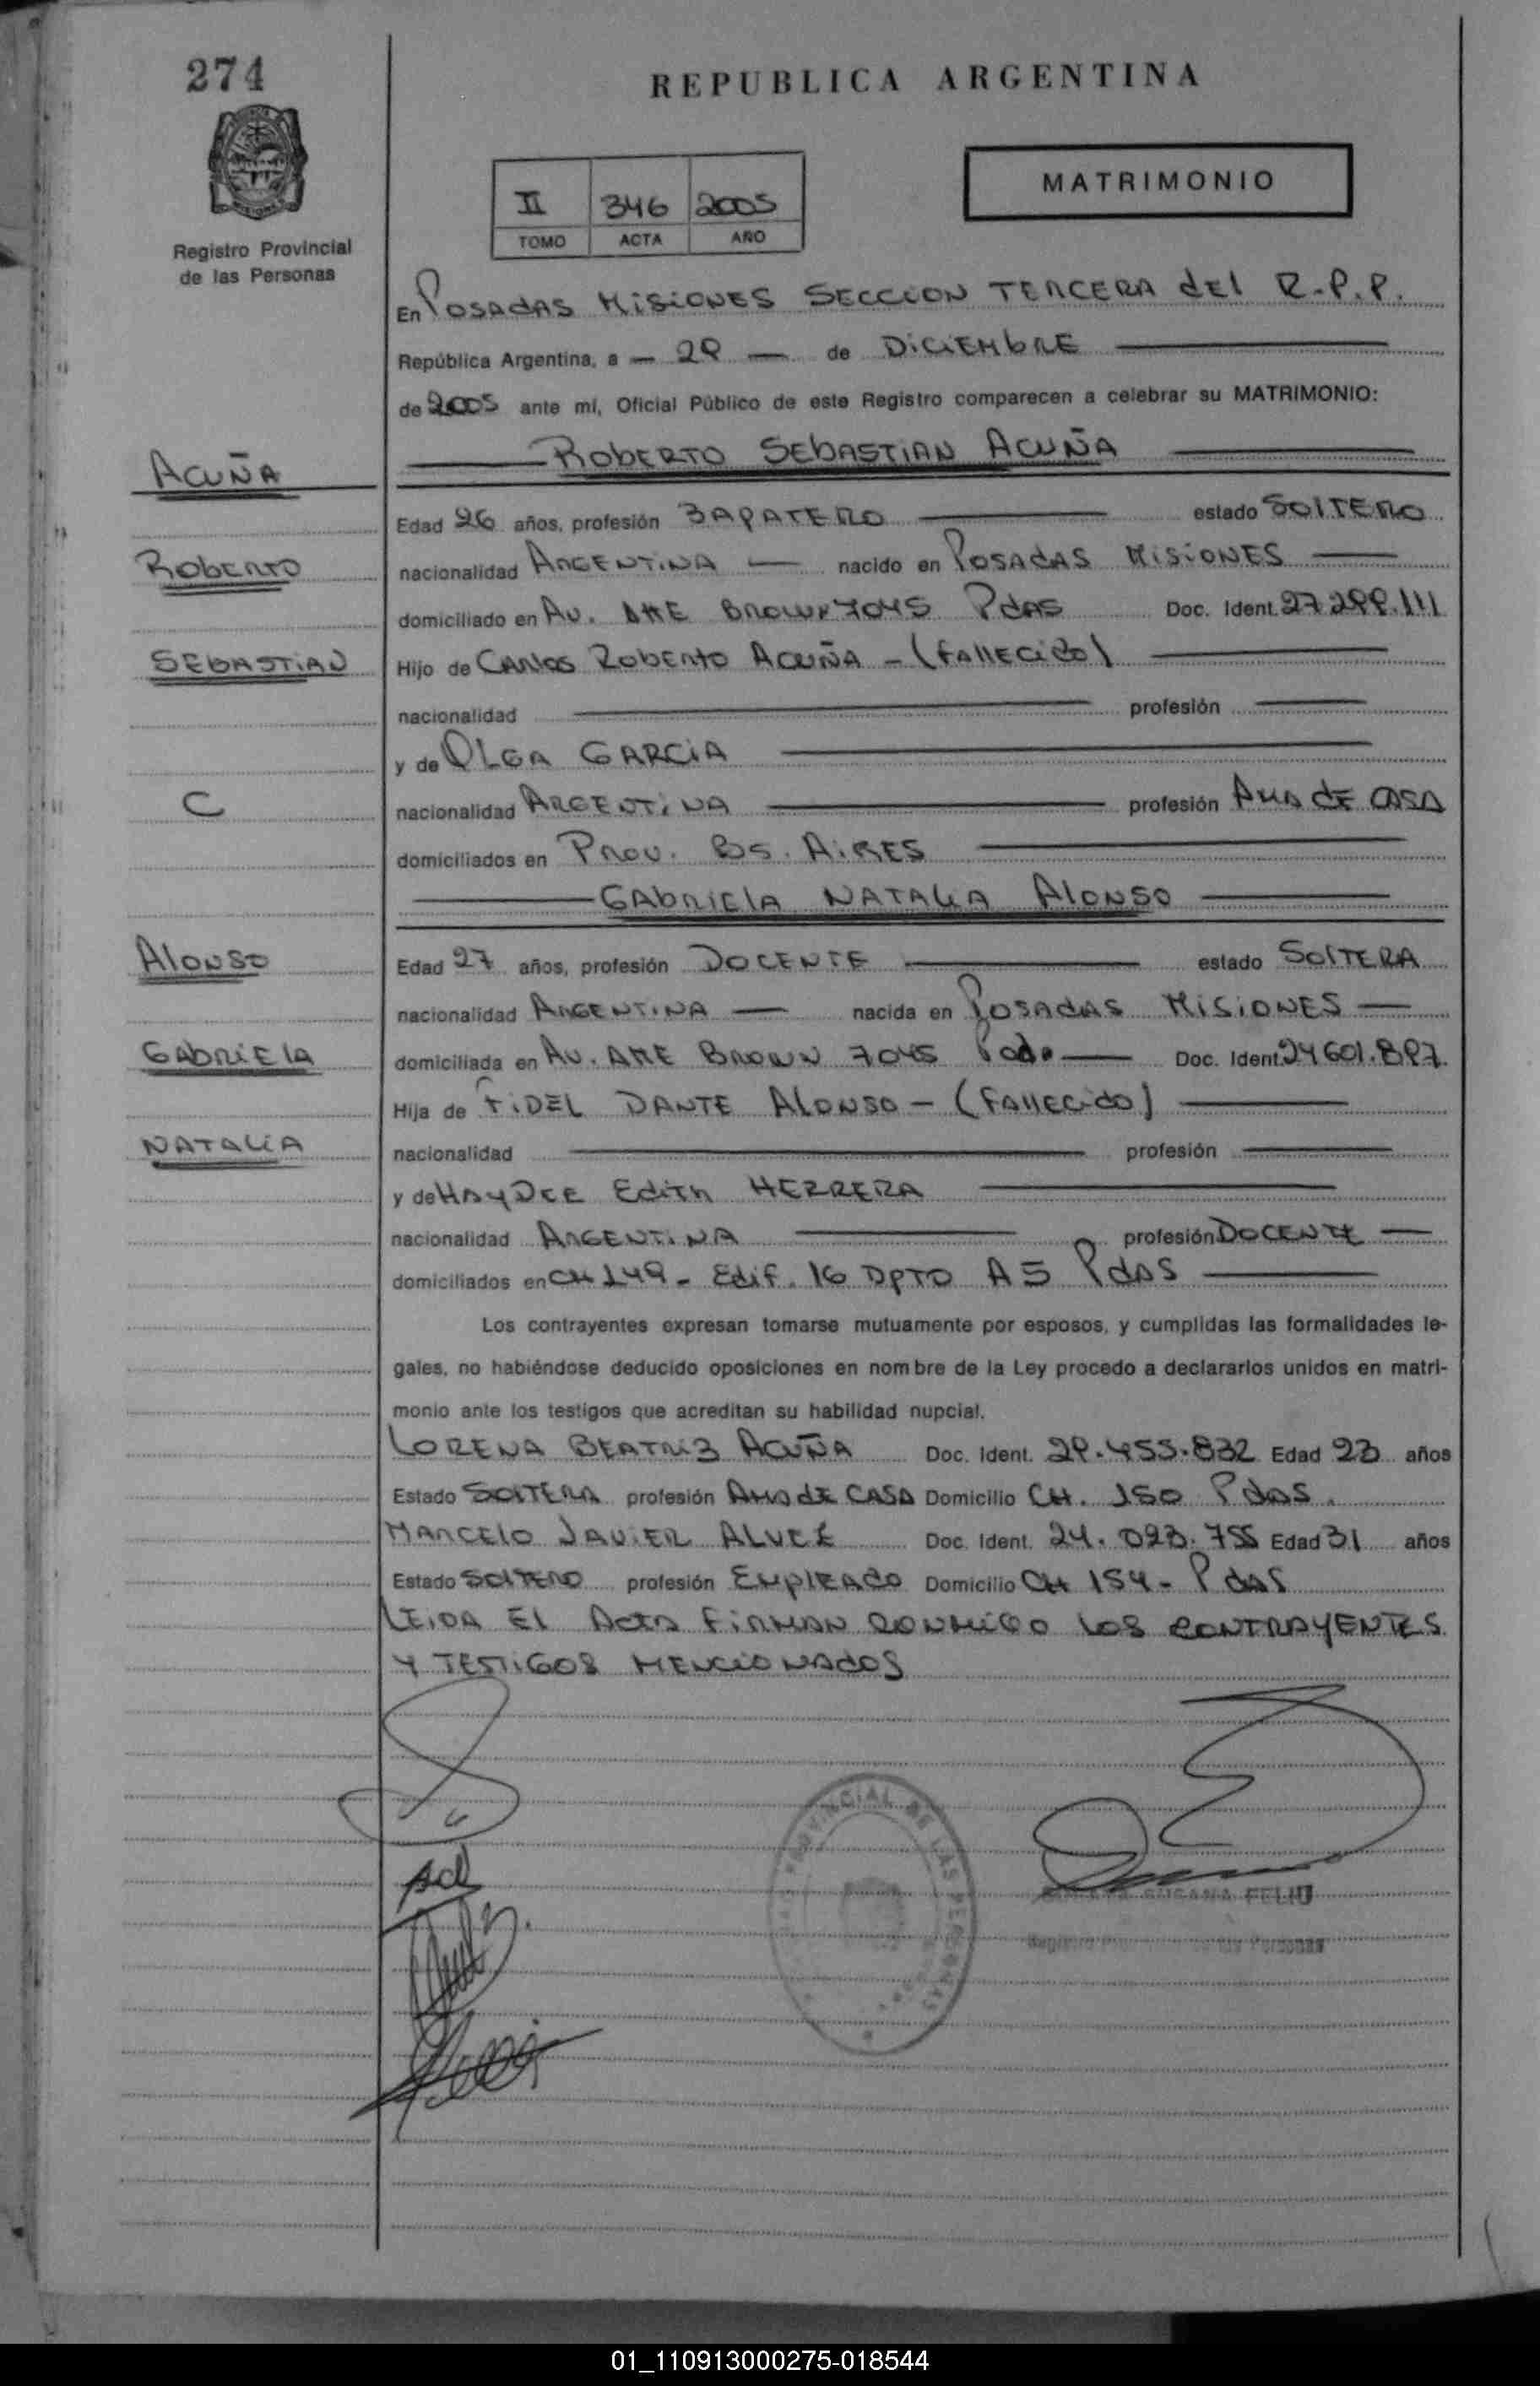 274
REPUBLICA ARGENTINA
MATRIMONIO
II 346 2005
TOMO ACTA AÑO
Registro Provincial
de las Personas
En POSADAS MISIONES SECCION TERCERA del R.P.P.
República Argentina, a — 29 — de DICIEMBRE
de 2005 ante mí, Oficial Público de este Registro comparecen a celebrar su MATRIMONIO:
ROBERTO SEBASTIAN ACUÑA
ACUÑA
Edad 26 años, profesión ZAPATERO estado SOLTERO
ROBERTO
nacionalidad ARGENTINA — nacido en POSADAS MISIONES
domiciliado en AV. ALTE BROWN 7045 PdAS Doc. Ident. 27.299.111
SEBASTIAN
Hijo de CARLOS ROBERTO ACUÑA - (FALLECIDO)
nacionalidad profesión
y de OLGA GARCIA
C
nacionalidad ARGENTINA profesión AMA DE CASA
domiciliados en PROV. BS. AIRES
GABRIELA NATALIA ALONSO
ALONSO
Edad 27 años, profesión DOCENTE estado SOLTERA
nacionalidad ARGENTINA — nacida en POSADAS MISIONES —
GABRIELA
domiciliada en AV. ALTE BROWN 7045 Doc. Ident. 24601.897
Hija de FIDEL DANTE ALONSO - (FALLECIDO)
NATALIA
nacionalidad profesión
y de HAYDEE EDITH HERRERA
nacionalidad ARGENTINA profesión DOCENTE —
domiciliados en CH 149 - Edif. 16 DPTO A5 PdAS
Los contrayentes expresan tomarse mutuamente por esposos, y cumplidas las formalidades le-
gales, no habiéndose deducido oposiciones en nombre de la Ley procedo a declararlos unidos en matri-
monio ante los testigos que acreditan su habilidad nupcial.
LORENA BEATRIZ ACUÑA Doc. Ident. 29.455.832 Edad 23 años
Estado SOLTERA profesión AMA DE CASA Domicilio CH. 150 PdAS.
MARCELO JAVIER Doc. Ident. 24.093.755 Edad 31 años
Estado SOLTERO profesión EMPLEADO Domicilio CH 154 - PdAS
LEIDA EL ACTA FIRMAN CONMIGO LOS CONTRAYENTES
Y TESTIGOS MENCIONADOS
PROVINCIAL DE LAS PERSONAS
SUSANA FELIU
Registro Provincial de las Personas
01_110913000275-018544